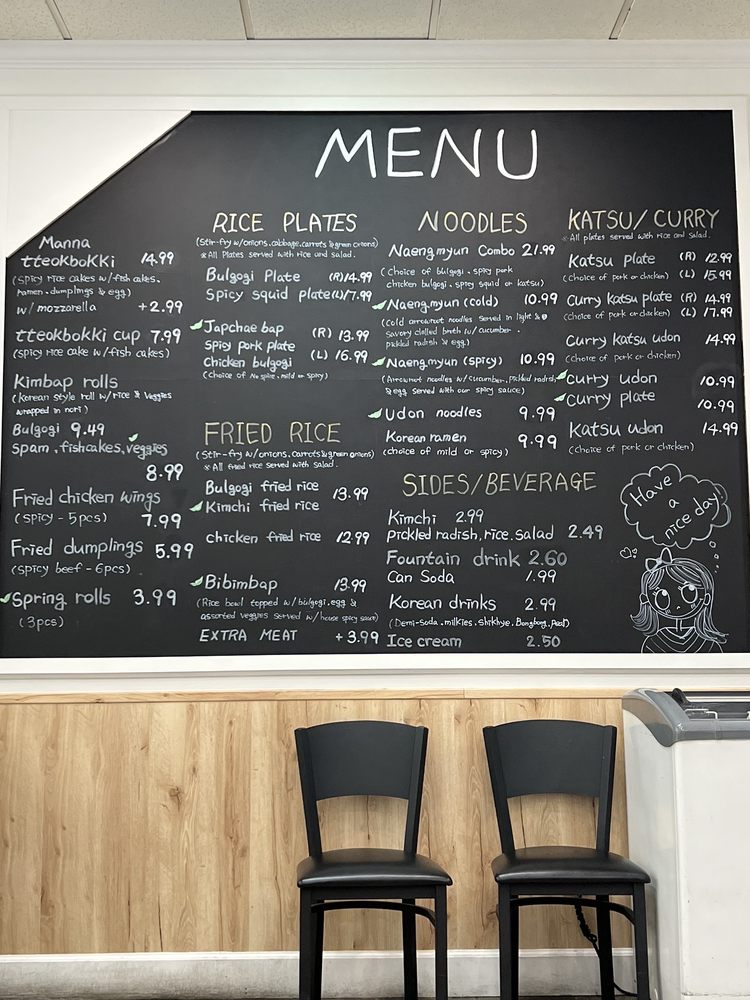 MENU
Manna
tteokbokki 14.99
(spicy rice cakes w/fish cakes.
ramen.dumplings & egg)
w/ mozzarella +2.99
tteokbokki cup 7.99
(spicy rice cake w/fish cakes)
Kimbap rolls
(Korean style roll w/rice & veggies
wrapped in nori)
Bulgogi 9.49
Spam.fishcakes.veggies
8.99
Fried chicken wings
(spicy - 5pcs) 7.99
Fried dumplings 5.99
(spicy beef - 6pcs)
Spring rolls 3.99
(3pcs)
RICE PLATES
(Stir-fry w/onions.cabbage.carrots & green onions)
* All Plates served with rice and salad.
Bulgogi Plate (R)14.99
Spicy squid plate (L)17.99
Japchae bap (R) 13.99
Spicy pork plate
Chicken bulgogi (L) 16.99
(choice of No spice.mild or spicy)
FRIED RICE
(Stir-fry w/onions.carrots & green onions)
* All fried rice served with salad.
Bulgogi fried rice
13.99
Kimchi fried rice
chicken fried rice 12.99
Bibimbap 13.99
(Rice bowl topped w/bulgogi.egg &
assorted veggies served w/house spicy sauce)
EXTRA MEAT +3.99
NOODLES
Naengmyun Combo 21.99
(choice of bulgogi.spicy pork
chicken bulgogi.spicy squid or katsu)
Naengmyun (cold) 10.99
(cold arrowroot noodles served in light &
savory chilled broth w/cucumber.
pickled radish & egg)
Naengmyun (spicy) 10.99
(Arrowroot noodles w/cucumber.pickled radish
& egg served with our spicy sauce)
Udon noodles 9.99
Korean ramen 9.99
(choice of mild or spicy)
SIDES/BEVERAGE
Kimchi 2.99
pickled radish.rice.salad 2.49
Fountain drink 2.60
Can Soda 1.99
Korean drinks 2.99
(Demi-Soda.milkies.shikhye.Bongbong.Pear)
Ice cream 2.50
KATSU/CURRY
* All plates served with rice and salad.
Katsu plate (R) 12.99
(choice of pork or chicken) (L) 15.99
Curry katsu plate (R) 14.99
(choice of pork or chicken) (L) 17.99
Curry katsu udon 14.99
(choice of pork or chicken)
Curry udon 10.99
Curry plate 10.99
Katsu udon 14.99
(choice of pork or chicken)
Have
a
nice day